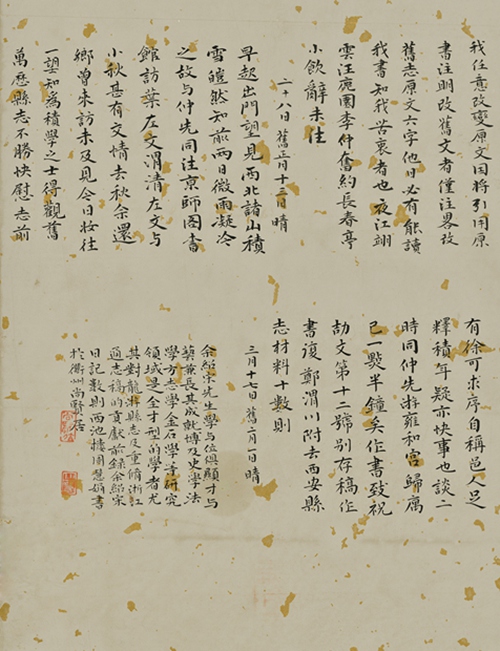 我任意改變原文因將引用原
書注明改舊文者僅注畧改
舊志原文六字他日必有能讀
我書知我苦衷者也夜江翊
雲汪鹿園李仲奮約長春亭
小飲辭未往
二十八日舊正月十三日晴
早起出門望見西北諸山積
雪皚然知前兩日微雨凝冷
之故与仲先同往京師圖書
館訪葉左文渭清左文与
小秋甚有交情去秋余還
鄉曾來訪未及見今日妝往
一望知為積學之士得觀舊
萬歷縣志不勝快慰志前
有徐可求序自稱邑人足
釋積年疑亦快事也談一
時同仲先游雍和宮歸寓
已一點半鐘矣作書致祝
劼文第十二號別存稿作
書復鄭渭川附去西安縣
志材料十數則
三月十七日舊二月一日晴
余紹宋先生學与位俱顯才与
藝兼長其成就博及史學法
學方志學金石學等研究
領域是全才型的學者尤
其對龍游縣志及重脩浙江
通志稿的貢獻前錄余紹宋
日記數則西池樓周慧娟書
於衢州尚賢居